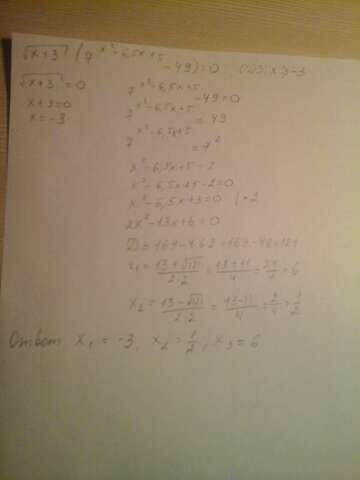 √x+3 (7^x²-6,5x+5 -49)=0 ОДЗ: x≥-3
√x+3=0
x+3=0
x=-3
7^x²-6,5x+5 -49=0
7^x²-6,5x+5 = 49
7^x²-6,5x+5 = 7²
x²-6,5x+5=2
x²-6,5x+5-2=0
x²-6,5x+3=0 |·2
2x²-13x+6=0
D=169-4·6·2=169-48=121
x₁=13+√121/2·2=13+11/4=24/4=6
x₂=13-√121/2·2=13-11/4=2/4=1/2
Ответ: x₁=-3, x₂=1/2, x₃=6